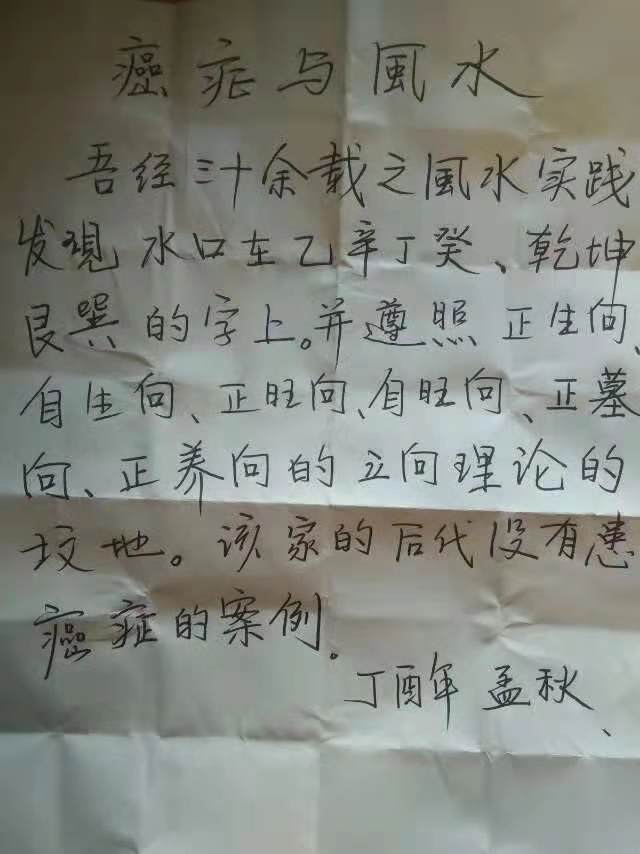 癌症与風水
吾经三十余载之風水实践
发現水口在乙辛丁癸、乾坤
艮巽的字上。并遵照正生向、
自生向、正旺向、自旺向、正墓
向、正养向的立向理论的
坟地。该家的后代没有患
癌症的案例.
丁酉年孟秋、